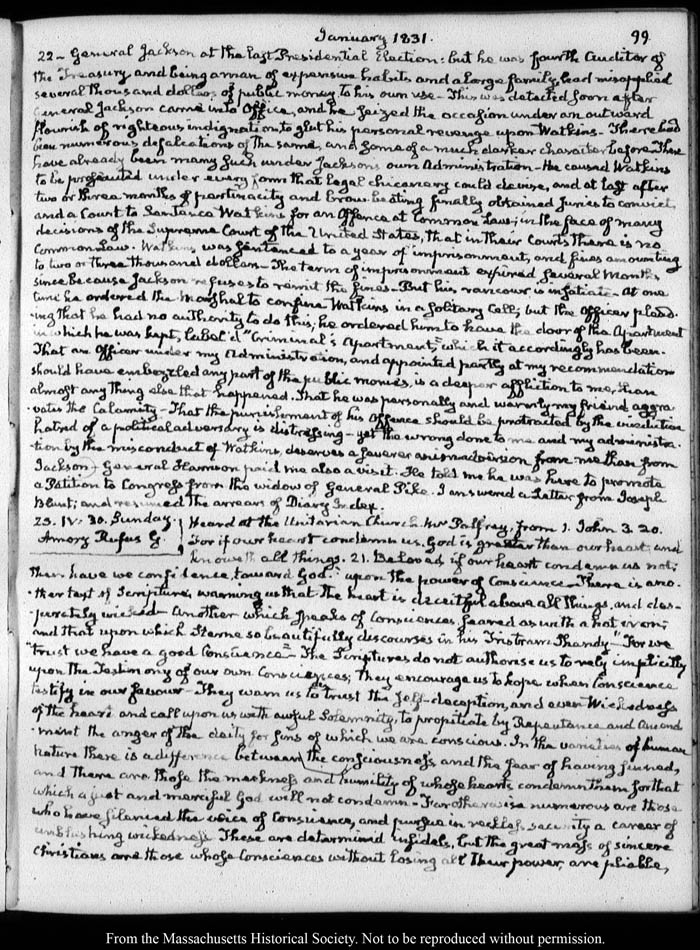 January 1831.
99
22 — General Jackson at the last Presidential Election: but he was fourth Auditor of
the Treasury and being a man of expensive habits and a large family, had misapplied
several thousand dollars of public money to his own use — This was detected soon after
General Jackson came into Office, and he seized the occasion under an outward
flourish of righteous indignation to glut his personal revenge upon Watkins — There had
been numerous defalcations of the same, and some of a much darker character before. There
have already been many such under Jackson's own Administration — He caused Watkins
to be prosecuted under every form that legal chicanery could devise, and at last after
two or three months of pertinacity and brow-beating finally obtained Juries to convict
and a Court to sentence Watkins for an Offence at Common Law; in the face of many
decisions of the Supreme Court of the United States, that in their Courts there is no
Common Law. Watkins was sentenced to a year of imprisonment, and fines amounting
to two or three thousand dollars — The term of imprisonment expired several months
since because Jackson refuses to remit the fines — But his rancour is insatiate — At one
time he ordered the Marshal to confine Watkins in a solitary Cell; but the Officer plead-
ing that he had no authority to do this, he ordered him to have the door of the Apartment
in which he was kept, label'd "Criminal's Apartment," which it accordingly has been.
That an Officer under my Administration, and appointed partly at my recommendation
should have embezzled any part of the public monies, is a deeper affliction to me, than
almost any thing else that happened. That he was personally and warmly my friend aggra-
vates the Calamity — That the punishment of his Offence should be protracted by the vindictive
hatred of a political adversary is distressing — yet the wrong done to me and my administra-
tion by the misconduct of Watkins, deserves a severer animadversion from me than from
Jackson — General Harrison paid me also a visit. He told me he was here to promote
a Petition to Congress from the widow of General Pike. I answered a Letter from Joseph
Blunt; and resumed the arrears of Diary Index.
23. IV: 30. Sunday. Heard at the Unitarian Church Mr Palfrey, from 1. John 3. 20.
Amory Rufus G. For if our heart condemn us, God is greater than our heart and
knoweth all things. 21. Beloved if our heart condemn us not;
then have we confidence toward God. upon the power of Conscience — There is ano-
ther text of Scripture, warning us that The heart is deceitful above all things, and des-
perately wicked — Another which speaks of Consciences seared as with a hot iron;
and that upon which Sterne so beautifully discourses in his Tristram Shandy. "For we
"trust we have a good Conscience" — The Scriptures do not authorise us to rely implicitly
upon the Testimony of our own Consciences; they encourage us to hope when Conscience
testify in our favour — They warn us to trust the self-deception, and even Wickedness
of the heart and call upon us with awful solemnity, to propitiate by Repentance and Amend-
ment the anger of the deity for sins of which we are conscious. In the varieties of human
nature there is a difference between the consciousness and the fear of having sinned,
and There are those the meekness and humility of whose hearts condemn them for that
which a just and merciful God will not condemn — Far otherwise numerous are those
who have silenced the voice of Conscience, and pursue in reckless security a career of
unblushing wickedness. These are determined infidels, but the great mass of sincere
Christians are those whose Consciences without losing all Their power, are pliable,
From the Massachusetts Historical Society. Not to be reproduced without permission.